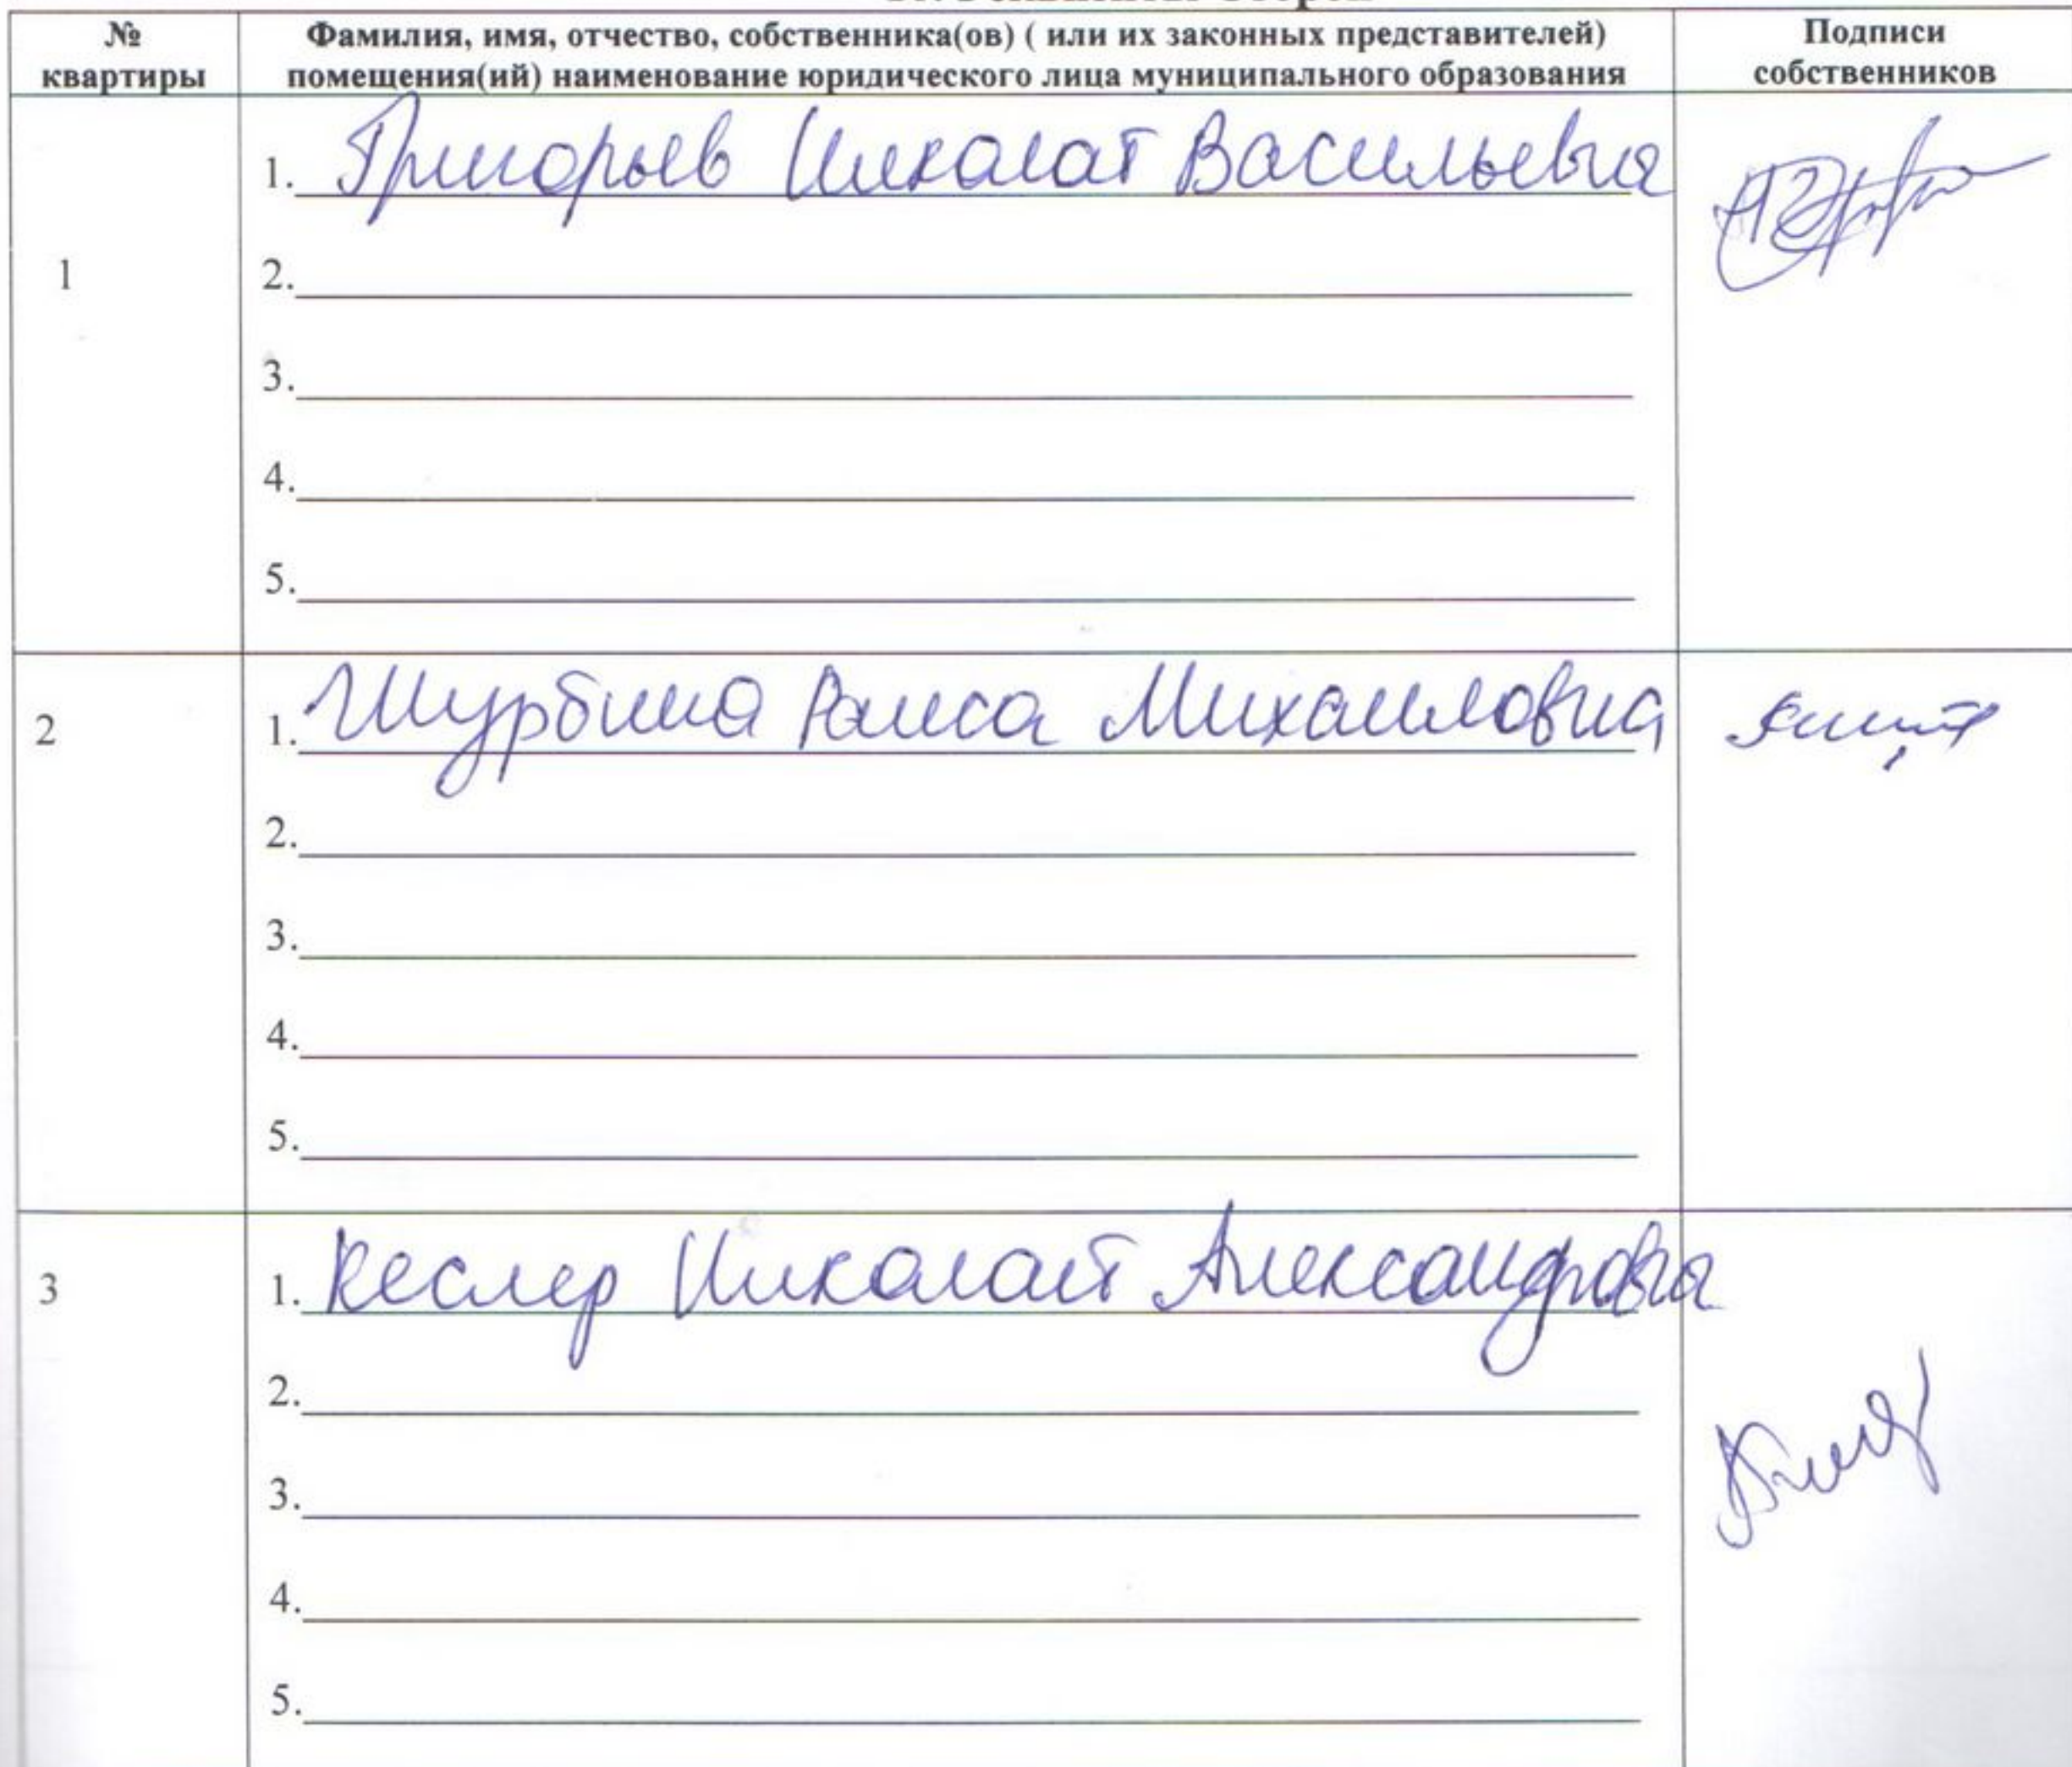 №
квартиры
Фамилия, имя, отчество, собственника(ов) ( или их законных представителей)
помещения(ий) наименование юридического лица муниципального образования
Подписи
собственников
1
1. Григорьев Николай Васильевич
2.
3.
4.
5.
2
1. Шурбина Раиса Михайловна
2.
3.
4.
5.
3
1. Кеслер Николай Александрович
2.
3.
4.
5.